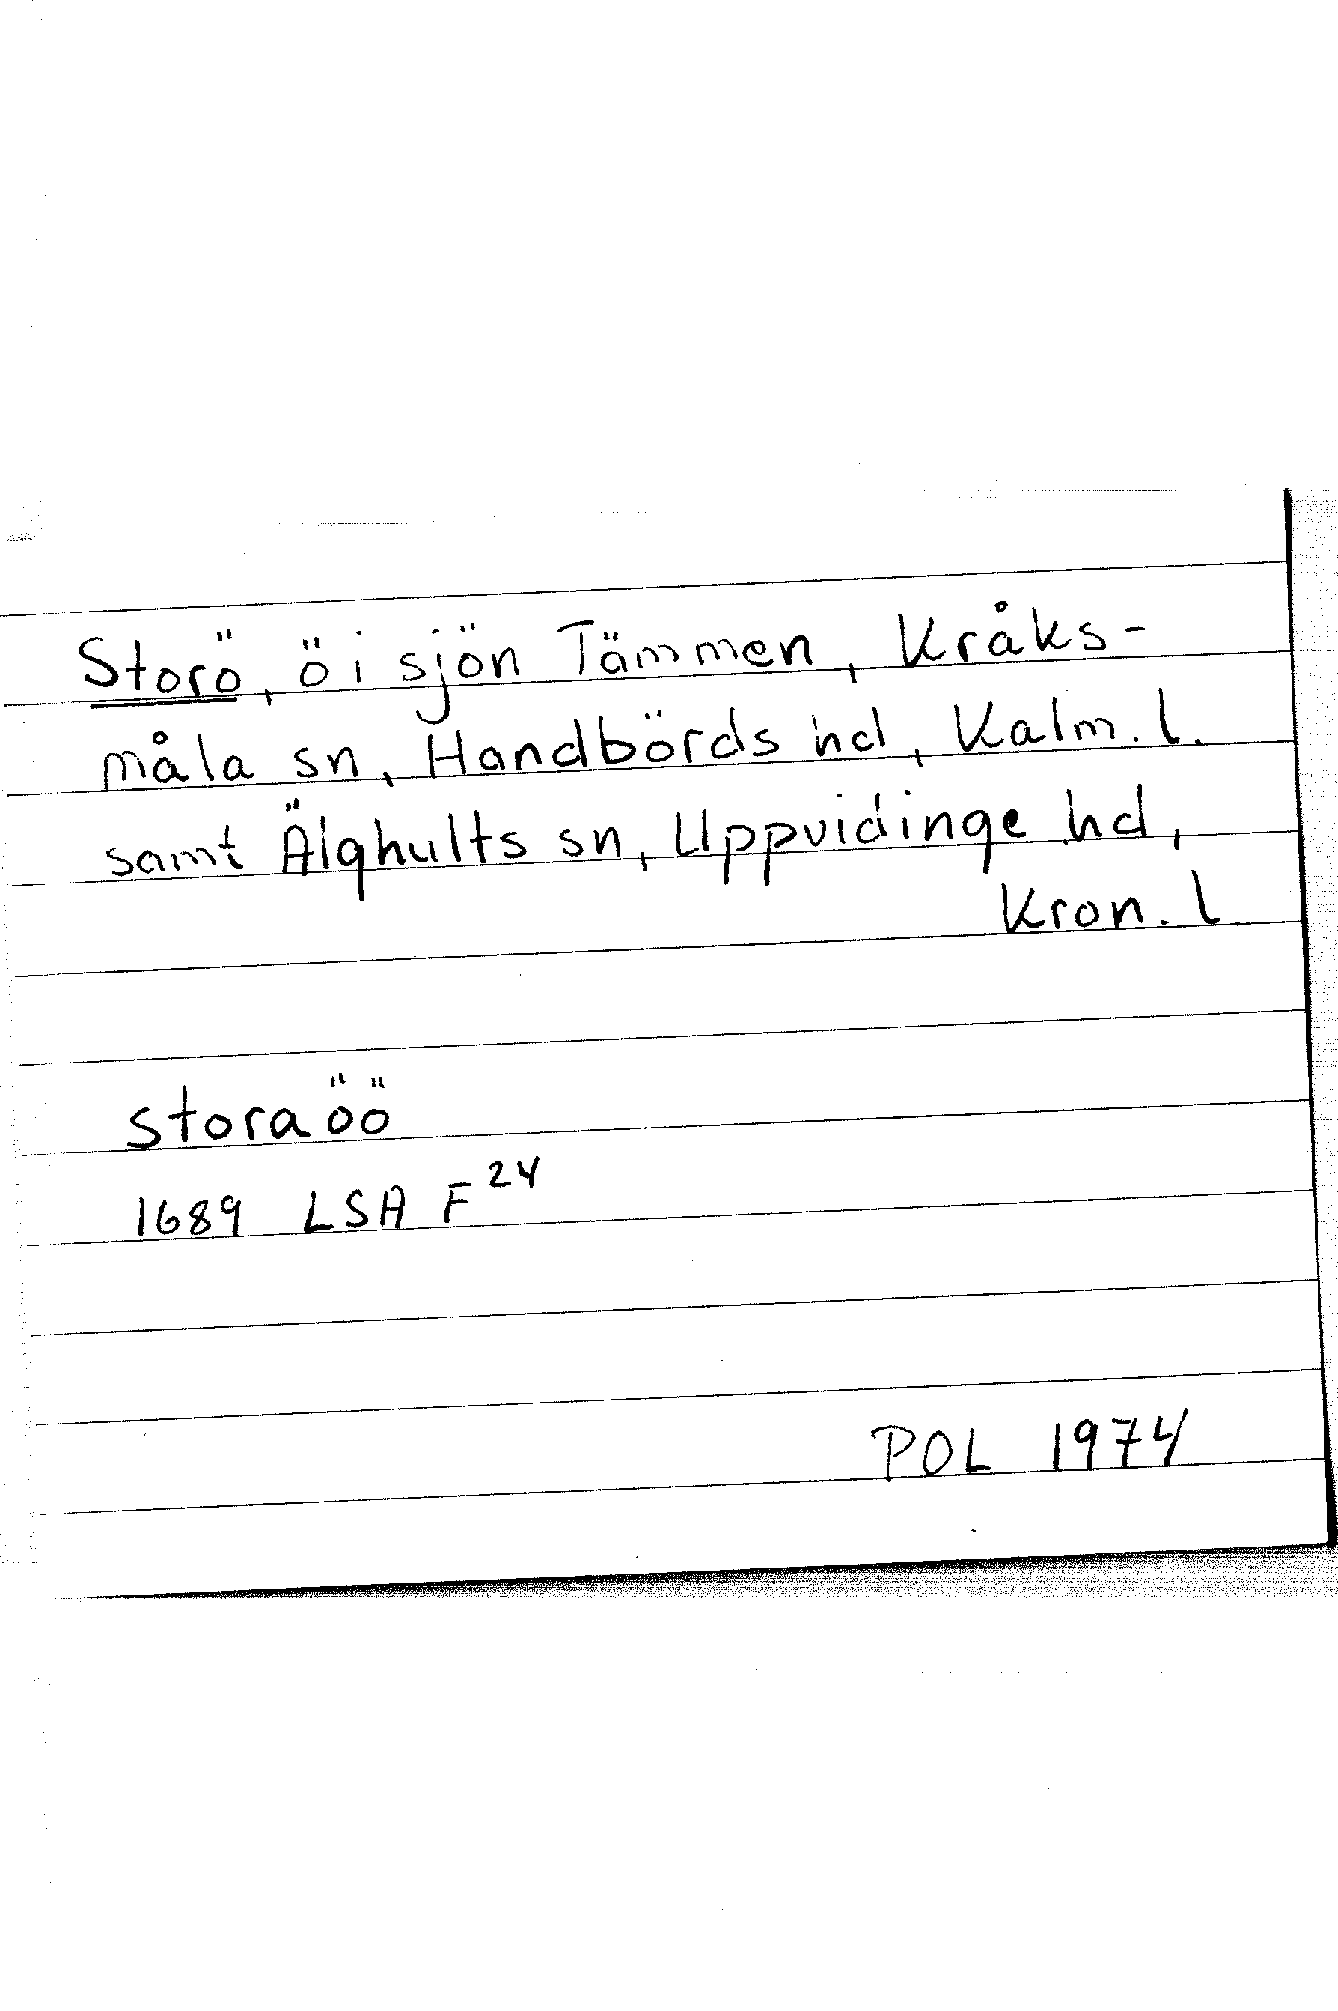 Storö, ö i sjön Tämmen, Kråks-
måla sn, Handbörds hd, Kalm. l.
samt Älghults sn, Uppvidinge hd,
Kron. l
storaöö
1689 LSA F 24
POL 1974